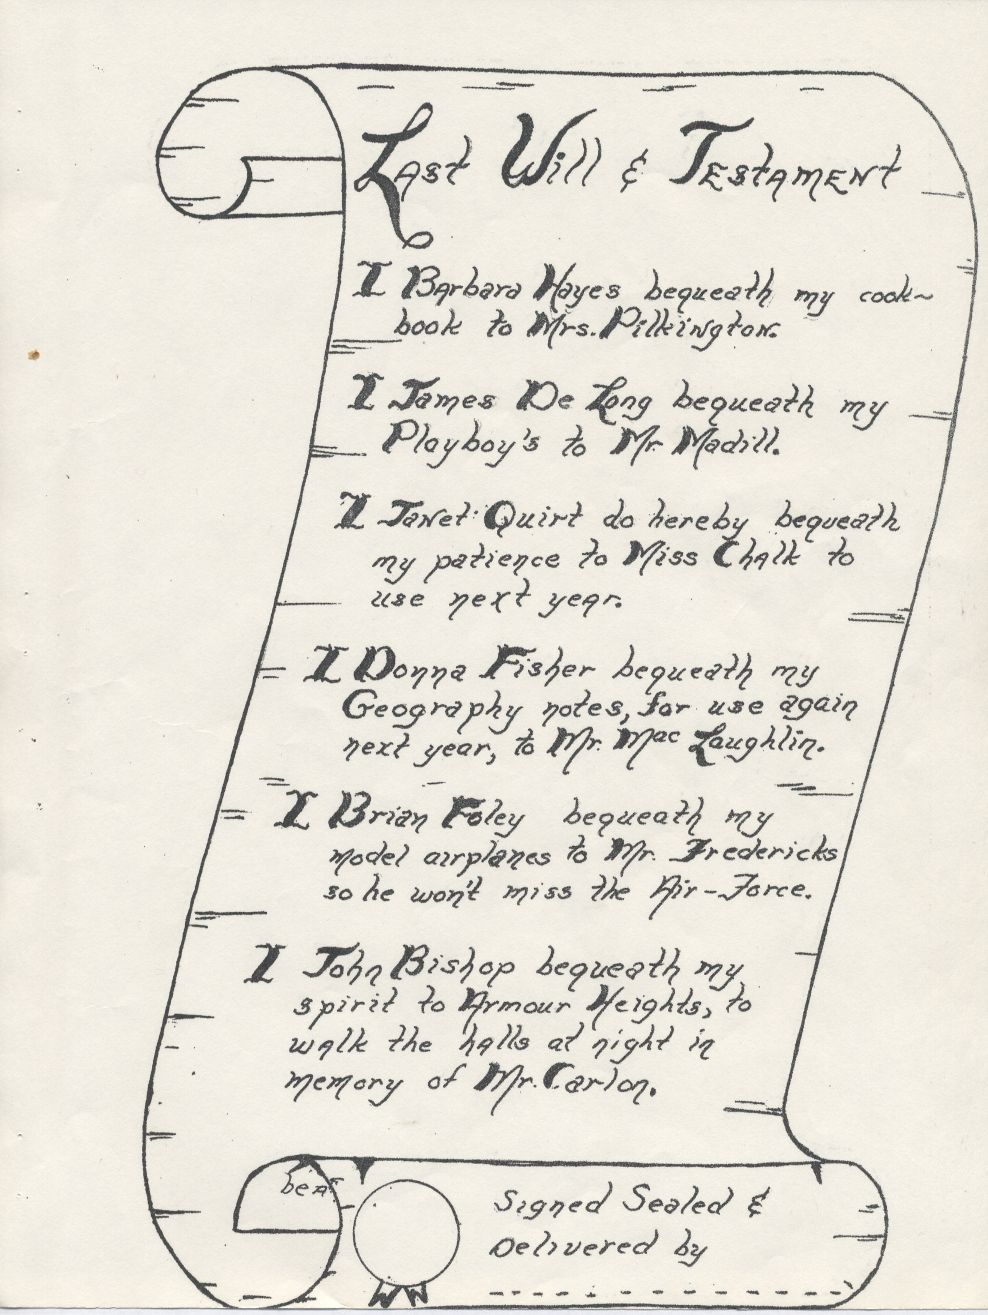 Last Will & Testament
I Barbara Hayes bequeath my cook~
book to Mrs. Pilkington.
I James De Long bequeath my
Playboy's to Mr. Madill.
I Janet Quirt do hereby bequeath
my patience to Miss Chalk to
use next year.
I Donna Fisher bequeath my
Geography notes, for use again
next year, to Mr. Mac Laughlin.
I Brian Foley bequeath my
model airplanes to Mr. Fredericks
so he won't miss the Air-Force.
I John Bishop bequeath my
spirit to Armour Heights, to
walk the halls at night in
memory of Mr. Carlon.
Signed Sealed &
Delivered by